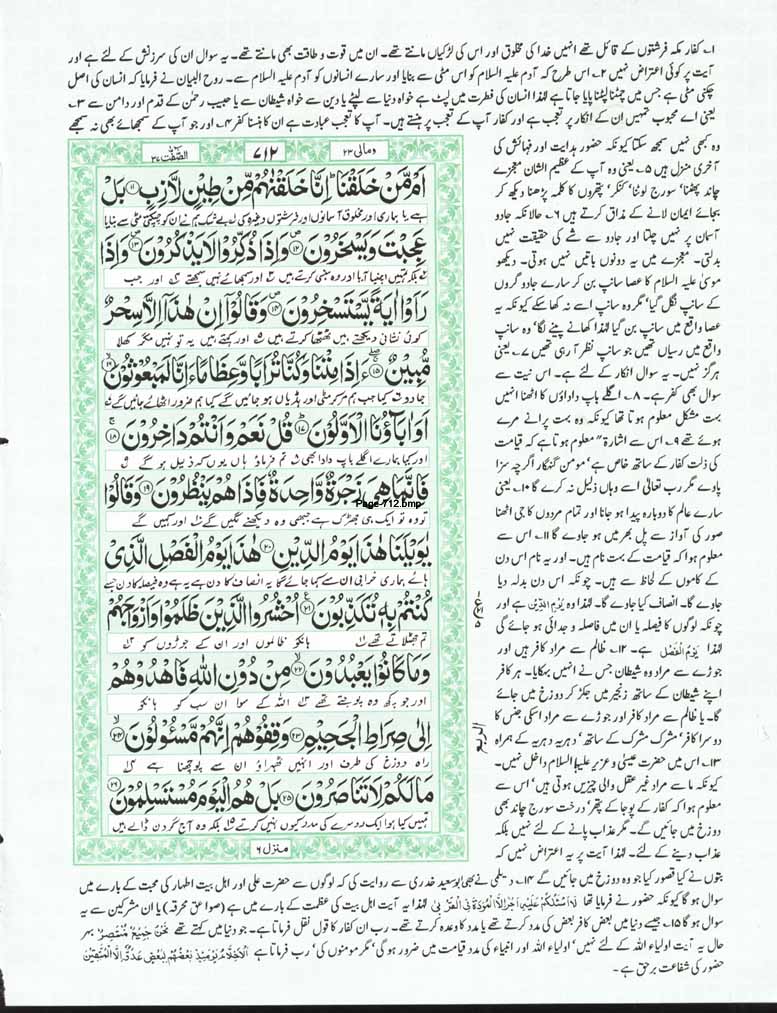 ۱۔ کفار مکہ فرشتوں کے قائل تھے انہیں خدا کی مخلوق اور اس کی لڑکیاں مانتے تھے۔ ان میں قوت و طاقت بھی مانتے تھے۔ یہ سوال ان کی سرزنش کے لئے ہے اور
آیت پر کوئی اعتراض نہیں ۲۔ اس طرح کہ آدم علیہ السلام کو اس مٹی سے بنایا اور سارے انسانوں کو آدم علیہ السلام سے۔ روح البیان نے فرمایا کہ انسان کی اصل
چکنی مٹی ہے جس میں چمٹنا لپٹنا پایا جاتا ہے لہٰذا انسان کی فطرت میں لپٹ ہے خواہ دنیا سے لپٹے یا دین سے خواہ شیطان سے یا حبیب رحمٰن کے قدم اور دامن سے ۳۔
یعنی اے محبوب تمہیں ان کے انکار پر تعجب ہے اور کفار آپ کے تعجب پر ہنستے ہیں۔ آپ کا تعجب عبادت ہے ان کا ہنسنا کفر ۴۔ اور جو آپ کے سمجھائے بھی نہ سمجھے
وہ کبھی نہیں سمجھ سکتا کیونکہ حضور ہدایت اور فہمائش کی
آخری منزل ہیں ۵۔ یعنی وہ آپ کے عظیم الشان معجزے
چاند پھٹنا، سورج لوٹنا، کنکر، پتھروں کا کلمہ پڑھنا دیکھ کر
بجائے ایمان لانے کے مذاق کرتے ہیں ۶۔ حالانکہ جادو
آسمان پر نہیں چلتا اور جادو سے شے کی حقیقت نہیں
بدلتی۔ معجزے میں یہ دونوں باتیں نہیں ہوتی۔ دیکھو
موسیٰ علیہ السلام کا عصا سانپ بن کر سارے جادو گروں
کے سانپ نگل گیا، مگر وہ سانپ اسے نہ کھا سکے کیونکہ یہ
عصا واقع میں سانپ بن گیا لہٰذا کھانے پینے لگا، وہ سانپ
واقع میں رسیاں تھیں جو سانپ نظر آ رہی تھیں ۷۔ یعنی
ہرگز نہیں۔ یہ سوال انکار کے لئے ہے۔ اس نیت سے
سوال بھی کفر ہے۔ ۸۔ اگلے باپ داداؤں کا اٹھنا انہیں
بہت مشکل معلوم ہوتا تھا کیونکہ وہ بہت پرانے مرے
ہوئے تھے ۹۔ اس سے اشارۃً معلوم ہوتا ہے کہ قیامت
کی ذلت کفار کے ساتھ خاص ہے، مومن گنہگار اگرچہ سزا
پاوے مگر رب تعالیٰ اسے وہاں ذلیل نہ کرے گا ۱۰۔ یعنی
سارے عالم کا دوبارہ پیدا ہو جانا اور تمام مردوں کا جی اٹھنا
صور کی آواز سے پل بھر میں ہو جاوے گا ۱۱۔ اس سے
معلوم ہوا کہ قیامت کے بہت نام ہیں۔ اور یہ نام اس دن
کے کاموں کے لحاظ سے ہیں۔ چونکہ اس دن بدلہ دیا
جاوے گا۔ انصاف کیا جاوے گا۔ لہٰذا وہ یَوْمُ الدِّیْنِ ہے اور
چونکہ لوگوں کا فیصلہ یا ان میں فاصلہ و جدائی ہو جائے گی
لہٰذا یَوْمُ الْفَصْلِ ہے۔ ۱۲۔ ظالم سے مراد کافر ہیں اور
جوڑے سے مراد وہ شیطان جس نے انہیں بہکایا۔ ہر کافر
اپنے شیطان کے ساتھ زنجیر میں جکڑ کر دوزخ میں جائے
گا۔ یا ظالم سے مراد کافر اور جوڑے سے مراد اسکی جنس کا
دوسرا کافر، مشرک مشرک کے ساتھ، دہریہ دہریہ کے ہمراہ
۱۳۔ اس میں حضرت عیسیٰ و عزیر علیہما السلام داخل نہیں۔
کیونکہ ما سے مراد غیر عقل والی چیزیں ہوتی ہیں، اس سے
معلوم ہوا کہ کفار کے پوجا کے پتھر، درخت سورج چاند بھی
دوزخ میں جائیں گے۔ مگر عذاب پانے کے لئے نہیں بلکہ
عذاب دینے کے لئے۔ لہٰذا آیت پر یہ اعتراض نہیں کہ
الصّٰفّٰت ۳۷
۷۱۲
وما لی ۲۳
اَمْ مَّنْ خَلَقْنَا ؕ اِنَّا خَلَقْنٰهُمْ مِّنْ طِیْنٍ لَّازِبٍ ﴿۱۱﴾ بَلْ
ہے یا ہماری اور مخلوق آسمانوں اور فرشتوں وغیرہ کی بے شک ہم نے ان کو چپکتی مٹی سے بنایا
عَجِبْتَ وَیَسْخَرُوْنَ ﴿۱۲﴾ وَاِذَا ذُكِّرُوْا لَا یَذْكُرُوْنَ ﴿۱۳﴾ وَاِذَا
بلکہ تمہیں اچنبھا آیا اور وہ ہنسی کرتے ہیں اور سمجھائے نہیں سمجھتے اور جب
رَاَوْا اٰیَةً یَّسْتَسْخِرُوْنَ ﴿۱۴﴾ وَقَالُوْۤا اِنْ هٰذَاۤ اِلَّا سِحْرٌ
کوئی نشانی دیکھتے ہیں ٹھٹھا کرتے ہیں اور کہتے ہیں یہ تو نہیں مگر کھلا
مُّبِیْنٌ ﴿۱۵﴾ ءَاِذَا مِتْنَا وَكُنَّا تُرَابًا وَّعِظَامًا ءَاِنَّا لَمَبْعُوْثُوْنَ ﴿۱۶﴾
جادو کیا جب ہم مر کر مٹی اور ہڈیاں ہو جائیں گے کیا ہم ضرور اٹھائے جائیں گے
اَوَاٰبَآؤُنَا الْاَوَّلُوْنَ ﴿۱۷﴾ قُلْ نَعَمْ وَاَنْتُمْ دَاخِرُوْنَ ﴿۱۸﴾
اور کیا ہمارے اگلے باپ دادا بھی تم فرماؤ ہاں یوں کہ ذلیل ہو گے
فَاِنَّمَا هِیَ زَجْرَةٌ وَّاحِدَةٌ فَاِذَا هُمْ یَنْظُرُوْنَ ﴿۱۹﴾ وَقَالُوْا
Page 712.bmp
تو وہ تو ایک ہی جھڑک ہے جبھی وہ دیکھنے لگیں گے اور کہیں گے
یٰوَیْلَنَا هٰذَا یَوْمُ الدِّیْنِ ﴿۲۰﴾ هٰذَا یَوْمُ الْفَصْلِ الَّذِیْ
ہائے ہماری خرابی ان سے کہا جائے گا یہ انصاف کا دن ہے یہ ہے وہ فیصلہ کا دن جسے
كُنْتُمْ بِهٖ تُكَذِّبُوْنَ ﴿۲۱﴾ اُحْشُرُوا الَّذِیْنَ ظَلَمُوْا وَاَزْوَاجَهُمْ
تم جھٹلاتے تھے ہانکو ظالموں اور ان کے جوڑوں کو
وَمَا كَانُوْا یَعْبُدُوْنَ ﴿۲۲﴾ مِنْ دُوْنِ اللّٰهِ فَاهْدُوْهُمْ
اور جو کچھ وہ پوجتے تھے اللہ کے سوا ان سب کو ہانکو
اِلٰی صِرَاطِ الْجَحِیْمِ ﴿۲۳﴾ وَقِفُوْهُمْ اِنَّهُمْ مَّسْـُٔوْلُوْنَ ﴿۲۴﴾
راہ دوزخ کی طرف اور انہیں ٹھہراؤ ان سے پوچھنا ہے
مَا لَكُمْ لَا تَنَاصَرُوْنَ ﴿۲۵﴾ بَلْ هُمُ الْیَوْمَ مُسْتَسْلِمُوْنَ ﴿۲۶﴾
تمہیں کیا ہوا ایک دوسرے کی مدد کیوں نہیں کرتے بلکہ وہ آج گردن ڈالے ہیں
منزل ۶
الربع
بتوں نے کیا قصور کیا جو وہ دوزخ میں جائیں گے ۱۴۔ دیلمی نے بھی ابو سعید خدری سے روایت کی کہ لوگوں سے حضرت علی اور اہل بیت اطہار کی محبت کے بارے میں
سوال ہو گا کیونکہ حضور نے فرمایا تھا لَا اَسْئَلُكُمْ عَلَیْهِ اَجْرًا اِلَّا الْمَوَدَّةَ فِی الْقُرْبٰی لہٰذا یہ آیت اہل بیت کی عظمت کے بارے میں ہے (صواعق محرقہ) یا ان مشرکین سے یہ
سوال ہو گا ۱۵۔ جیسے دنیا میں بعض کافر بعض کی مدد کرتے تھے یا مدد کا وعدہ کرتے تھے۔ رب ان کفار کا قول نقل فرماتا ہے۔ جو دنیا میں کہتے تھے نَحْنُ جَمِیْعٌ مُّنْتَصِرٌ بہر
حال یہ آیت اولیاء اللہ کے لئے نہیں، اولیاء اللہ اور انبیاء کی مدد قیامت میں ضرور ہو گی، مگر مومنوں کی، رب فرماتا ہے اَلْاَخِلَّآءُ یَوْمَئِذٍ بَعْضُهُمْ لِبَعْضٍ عَدُوٌّ اِلَّا الْمُتَّقِیْنَ
حضور کی شفاعت برحق ہے۔